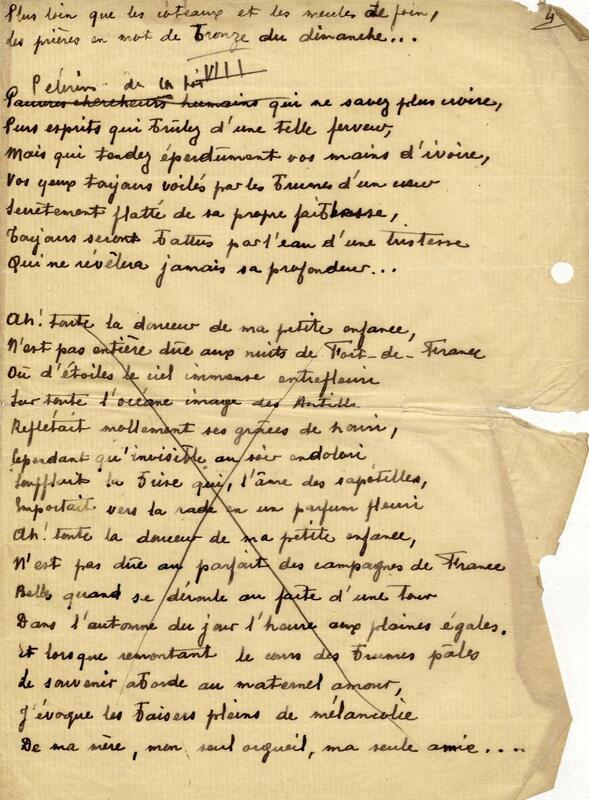 4
Plus loin que les coteaux et les meules de foin,
les prières en mot de bronze du dimanche...
VIII
Pèlerins de la foi
Pauvres chercheurs humains qui ne savez plus croire,
Purs esprits qui brûlez d'une telle ferveur,
Mais qui tendez éperdument vos mains d'ivoire,
Vos yeux toujours voilés par les brumes d'un cœur
Secrètement flatté de sa propre faiblesse,
Toujours seront battus par l'eau d'une tristesse
Qui ne révèlera jamais sa profondeur...
Ah! toute la douceur de ma petite enfance,
N'est pas entière due aux nuits de Fort-de-France
Où d'étoiles le ciel immense entrefleuri
Sur toute l'océane image des Antilles
Reflétait mollement ses grâces de houri,
Cependant qu'invisible au soir endolori
Soufflait la brise qui, l'âme des sapotilles,
Emportait vers la rade en un parfum fleuri
Ah! toute la douceur de ma petite enfance,
N'est pas due au parfait des campagnes de France
Belles quand se déroule au faîte d'une tour
Dans l'automne du jour l'heure aux plaines égales.
Et lorsque remontant le cours des brumes pâles
Le souvenir aborde au maternel amour,
J'évoque les baisers pleins de mélancolie
De ma mère, mon seul orgueil, ma seule amie....